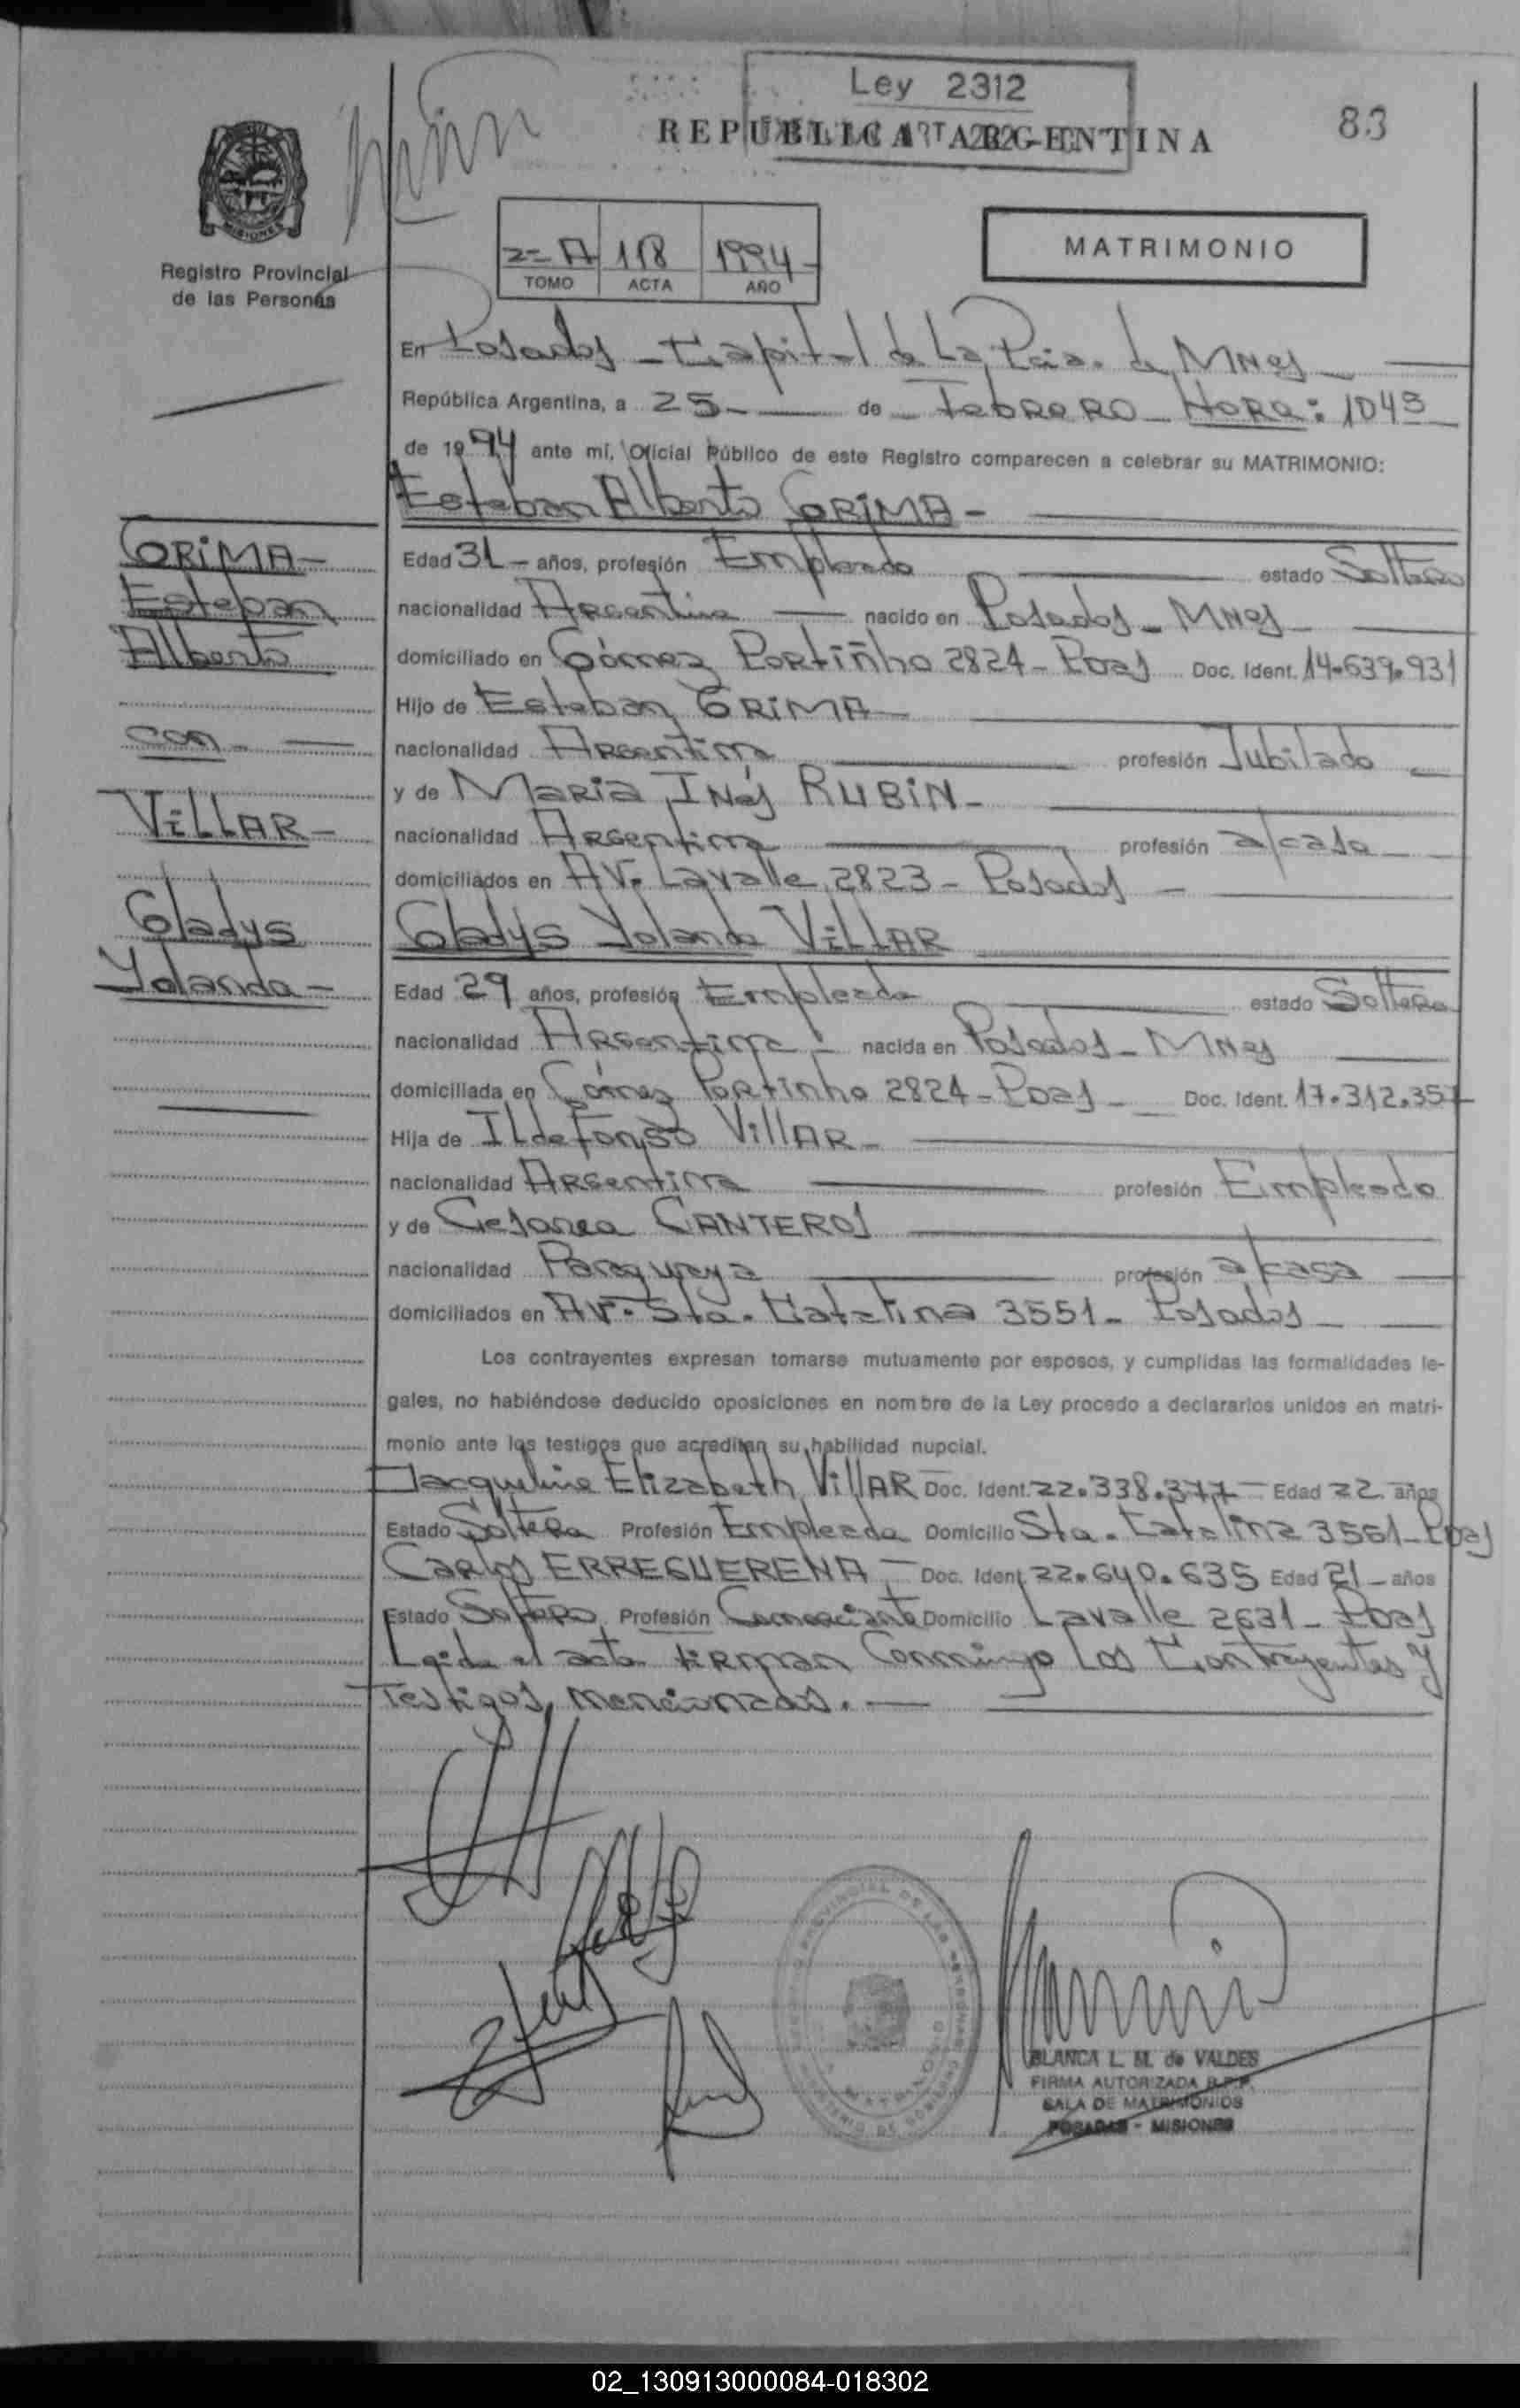 Ley 2312
REPUBLICA ARGENTINA
83
MISIONES
Registro Provincial
de las Personas
2= A 118 1994-
TOMO ACTA AÑO
MATRIMONIO
En Posadas - Capital de La Pcia. de Mnes
República Argentina, a 25- de Febrero Hora: 1043
de 1994 ante mí, Oficial Público de este Registro comparecen a celebrar su MATRIMONIO:
Esteban Alberto GRIMA-
GRIMA-
Esteban
Alberto
con-
VILLAR-
Gladys
Yolanda-
Edad 31- años, profesión Empleado estado Soltero
nacionalidad Argentina nacido en Posadas - Mnes
domiciliado en Gómez Portiñho 2824 - Pdas Doc. Ident. 14.639.931
Hijo de Esteban GRIMA
nacionalidad Argentina profesión Jubilado
y de Maria Inés RUBIN-
nacionalidad Argentina profesión a/casa
domiciliados en Av. Lavalle 2823 - Posadas -
Gladys Yolanda VILLAR
Edad 29 años, profesión Empleada estado Soltera
nacionalidad Argentina - nacida en Posadas - Mnes
domiciliada en Gómez Portinho 2824 - Pdas - Doc. Ident. 17.312.357
Hija de Ildefonso VillAR-
nacionalidad Argentina profesión Empleado
y de Cesarea CANTEROS
nacionalidad Paraguaya profesión a/casa
domiciliados en Av. Sta. Catalina 3551 - Posadas -
Los contrayentes expresan tomarse mutuamente por esposos, y cumplidas las formalidades le-
gales, no habiéndose deducido oposiciones en nombre de la Ley procedo a declararlos unidos en matri-
monio ante los testigos que acreditan su habilidad nupcial.
Jacqueline Elizabeth VillAR Doc. Ident. 22.338.377 - Edad 22 años
Estado Soltera Profesión Empleada Domicilio Sta. Catalina 3561 - Pdas
Carlos ERREGUERENA - Doc. Ident. 22.640.635 Edad 21 - años
Estado Soltero Profesión Comerciante Domicilio Lavalle 2631 - Pdas
Leida el acta firman Conmigo Los Contrayentes y
Testigos mencionados. -
BLANCA L. M. de VALDES
FIRMA AUTORIZADA R.P.P.
SALA DE MATRIMONIOS
POSADAS - MISIONES
02_130913000084-018302